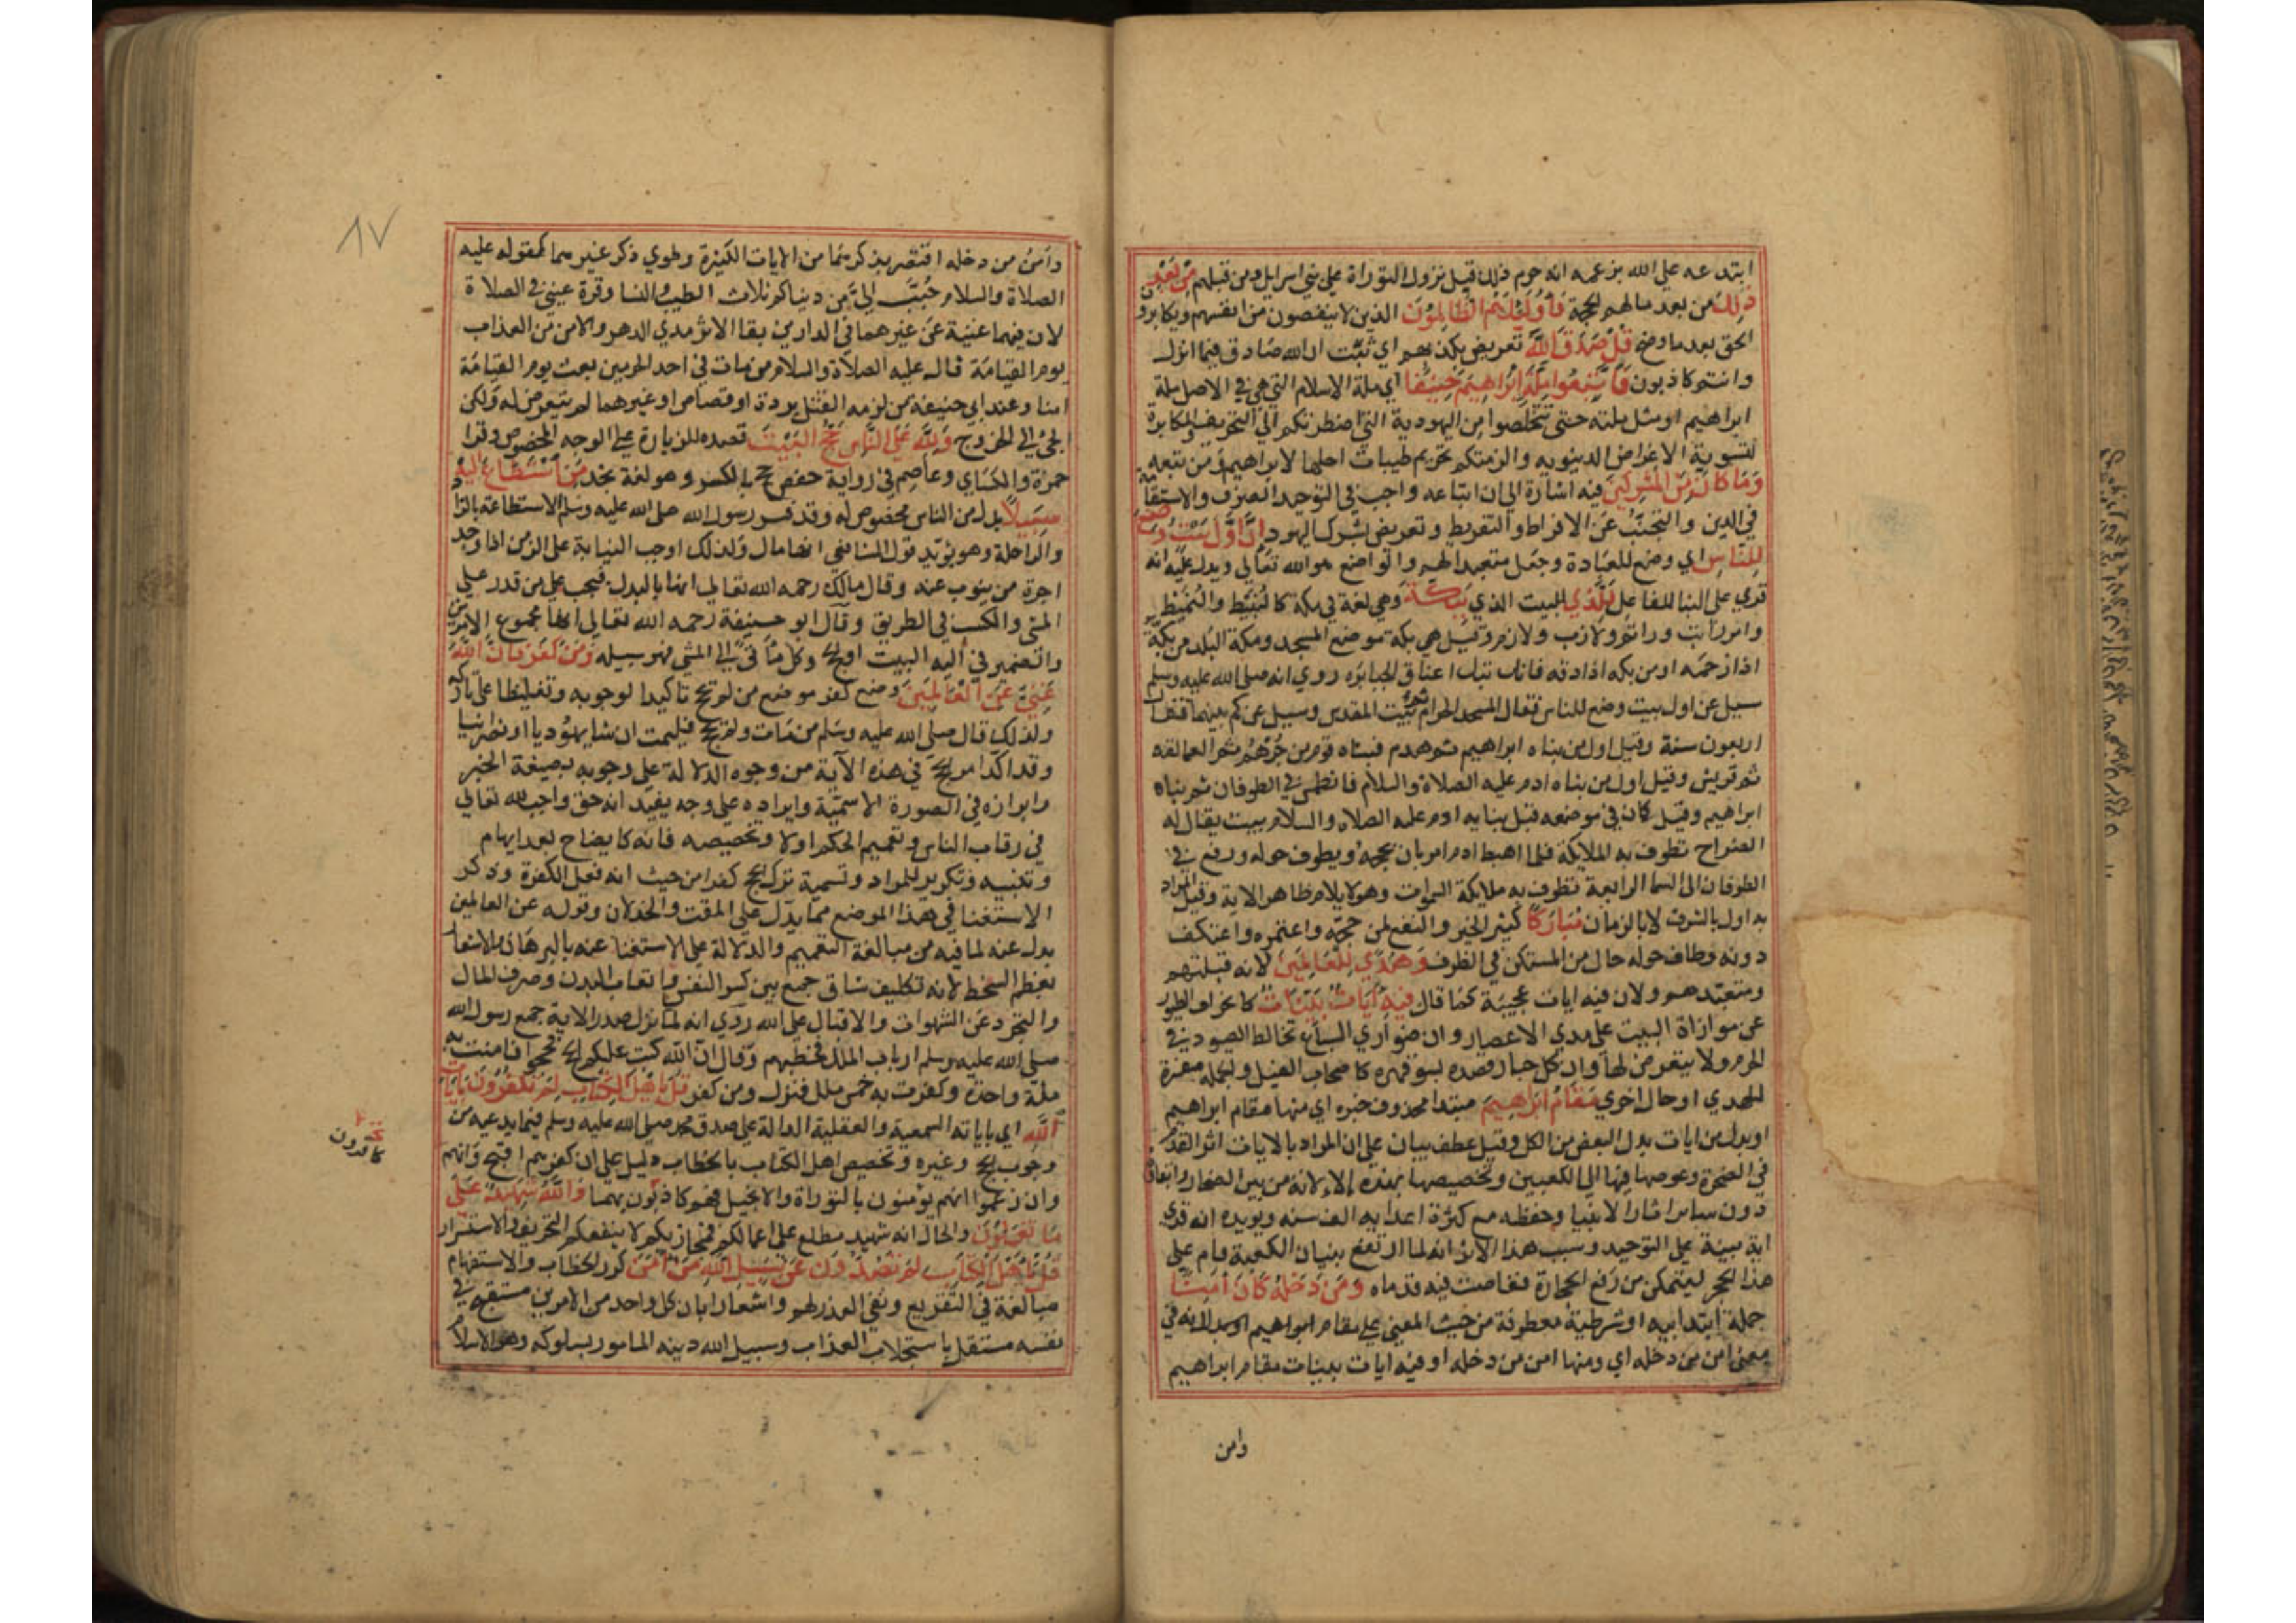 ابتدعه علي الله بزعمه انه حرم ذلك قبل نزول التوراة علي بني اسرايل ومن قبلهم من بعد
ذلك من بعد ما لزمتهم الحجة فاوليك هم الظالمون الذين لا ينصفون من انفسهم ويكابرون
الحق بعد ما وضح قل صدق الله تعريض بكذبهم اي ثبت ان الله صادق فيما انزل
وانتم كاذبون فاتبعوا ملة ابراهيم حنيفا اي ملة الاسلام التي هي في الاصل ملة
ابراهيم او مثل ملته حتي تتخلصوا من اليهودية التي اضطرتكم الي التحريف والمكابرة
لتسوية الاغراض الدينويه والزمتكم تحريم طيبات احلها لابراهيم ومن تبعه
وما كان من المشركين فيه اشارة الي ان اتباعه واجب في التوحيد الصرف والاستقامة
في الدين والتجنب عن الافراط والتفريط وتعريض بشرك اليهود ان اول بيت وضع
للناس اي وضع للعبادة وجعل متعبدا لهم والواضع هو الله تعالي ويدل عليه انه
قري علي البنا للفاعل للذي للبيت الذي ببكة وهي لغة في مكة كالنبيط والنميط
وامر راتب وراتم ولازب ولازم وقيل هي بكة موضع المسجد ومكة البلد من بكه
اذا زحمه او من بكه اذا دقه فانها تبك اعناق الجبابره روي انه صلي الله عليه وسلم
سيل عن اول بيت وضع للناس فقال المسجد الحرام ثم بيت المقدس وسيل عن كم بينهما فقال
اربعون سنة وقيل اول من بناه ابراهيم ثم هدم فبناه قوم من جرهم ثم العمالقه
ثم قريش وقيل اول من بناه ادم عليه الصلاة والسلام فانطمس في الطوفان ثم بناه
ابراهيم وقيل كان في موضعه قبل بنايه ادم عليه الصلاه والسلام بيت يقال له
الضراح تطوف به الملايكة فلما اهبط ادم امر بان يحجه ويطوف حوله ورفع في
الطوفان الي السما الرابعة تطوف به ملايكة السموات وهو لا يلايم ظاهر الاية وقيل المراد
به اول بالشرف لا بالزمان مباركا كثير الخير والنفع لمن حجه واعتمره واعتكف
دونه وطاف حوله حال من المستكن في الظرف وهدي للعالمين لانه قبلتهم
ومتعبدهم ولان فيه ايات عجيبة كما قال فيه ايات بينات كانحراف الطيور
عن موازاة البيت علي مدي الاعصار وان ضواري السباع تخالط الصيود في
الحرم ولا يتعرض لها وان كل جبار قصده بسوء قهره كاصحاب الفيل والجمله مفسرة
للهدي او حال اخري مقام ابراهيم مبتدا محذوف خبره اي منها مقام ابراهيم
او بدل من ايات بدل البعض من الكل وقيل عطف بيان علي ان المراد بالايات اثر القدم
في الصخرة وغوصها فيها الي الكعبين وتخصيصها بهذه الالانة من بين الصخار وابقاؤه
دون سايرا ثار الانبيا وحفظه مع كثرة اعدايه الف سنه ويويده انه قري
اية بينة علي التوحيد وسبب هذا الاثر انه لما ارتفع بنيان الكعبة قام علي
هذا الحجر ليتمكن من رفع الحجارة فغاصت فيه قدماه ومن دخله كان امنا
جملة ابتدائيه او شرطية معطوفة من حيث المعني علي مقام ابراهيم لانه في
معني امن من دخله اي ومنها امن من دخله او فيه ايات بينات مقام ابراهيم
وامن
٨٧
وامن من دخله اقتصر بذكرهما من الايات الكثيرة وطوي ذكر غيرهما كقوله عليه
الصلاة والسلام حبب الي من دنياكم ثلاث الطيب والنسا وقرة عيني في الصلاة
لان فيهما غنية عن غيرهما في الدارين بقا الاثر مدي الدهر والامن من العذاب
يوم القيامة قال عليه الصلاة والسلام من مات في احد الحرمين بعث يوم القيامة
امنا وعند ابي حنيفة من لزمه القتل بردة او قصاص او غيرهما لم يتعرض له ولكن
الجئ الي الخروج ولله علي الناس حج البيت قصده للزيارة علي الوجه المخصوص وقرا
حمزة والكساي وعاصم في رواية حفص حج بالكسر وهو لغة نجد من استطاع اليه
سبيلا بدل من الناس مخصوص له وقد فسر رسول الله صلي الله عليه وسلم الاستطاعة بالزاد
والراحلة وهو يؤيد قول الشافعي انها بالمال ولذلك اوجب النيابة علي الزمن اذا وجد
اجرة من ينوب عنه وقال مالك رحمه الله تعالي انها بالبدن فيجب علي من قدر علي
المشي والكسب في الطريق وقال ابو حنيفة رحمه الله تعالي انها بمجموع الامرين
والضمير في اليه للبيت او الحج وكل ما أتي الي الشي فهو سبيله ومن كفر فان الله
غني عن العالمين وضع كفر موضع من لم يحج تاكيدا لوجوبه وتغليظا علي تاركه
ولذلك قال صلي الله عليه وسلم من مات ولم يحج فليمت ان شا يهوديا او نصرانيا
وقد اكد امر الحج في هذه الآية من وجوه الدلالة علي وجوبه بصيغة الخبر
وابرازه في الصورة الاسمية وايراده علي وجه يفيد انه حق واجب لله تعالي
في رقاب الناس وتعميم الحكم اولا وتخصيصه فانه كايضاح بعد ايهام
وتثنيه وتكرير للمراد وتسمية ترك الحج كفرا من حيث انه فعل الكفرة وذكر
الاستغنا في هذا الموضع مما يدل علي المقت والخذلان وقوله عن العالمين
بدل عنه لما فيه من مبالغة التعميم والدلالة علي الاستغنا عنه بالبرهان والاشعار
بعظم السخط لانه تكليف شاق جمع بين كسر النفس واتعاب البدن وصرف المال
والتجرد عن الشهوات والاقبال علي الله روي انه لما نزل صدر الاية جمع رسول الله
صلي الله عليه وسلم ارباب الملل فخطبهم وقال ان الله كتب عليكم الحج فحجوا فامنت به
ملة واحدة وكفرت به خمس ملل فنزل ومن كفر قل يا اهل الكتاب لم تكفرون بايات
الله اي باياته السمعية والعقلية الدالة علي صدق محمد صلي الله عليه وسلم فيما يدعيه من
وجوب الحج وغيره وتخصيص اهل الكتاب بالخطاب دليل علي ان كفرهم اقبح وانهم
وان زعموا انهم يؤمنون بالتوراة والانجيل فهم كاذبون بهما والله شهيد علي
ما تعملون والحال انه شهيد مطلع علي اعمالكم فيجازيكم لا ينفعكم التحريف والاستسرار
قل يا اهل الكتاب لم تصدون عن سبيل الله من امن كرر الخطاب والاستفهام
مبالغة في التقريع ونفي العذر لهم واشعارا بان كل واحد من الامرين مستقبح في
نفسه مستقل باستجلاب العذاب وسبيل الله دينه المامور بسلوكه وهو الاسلام
كافرون